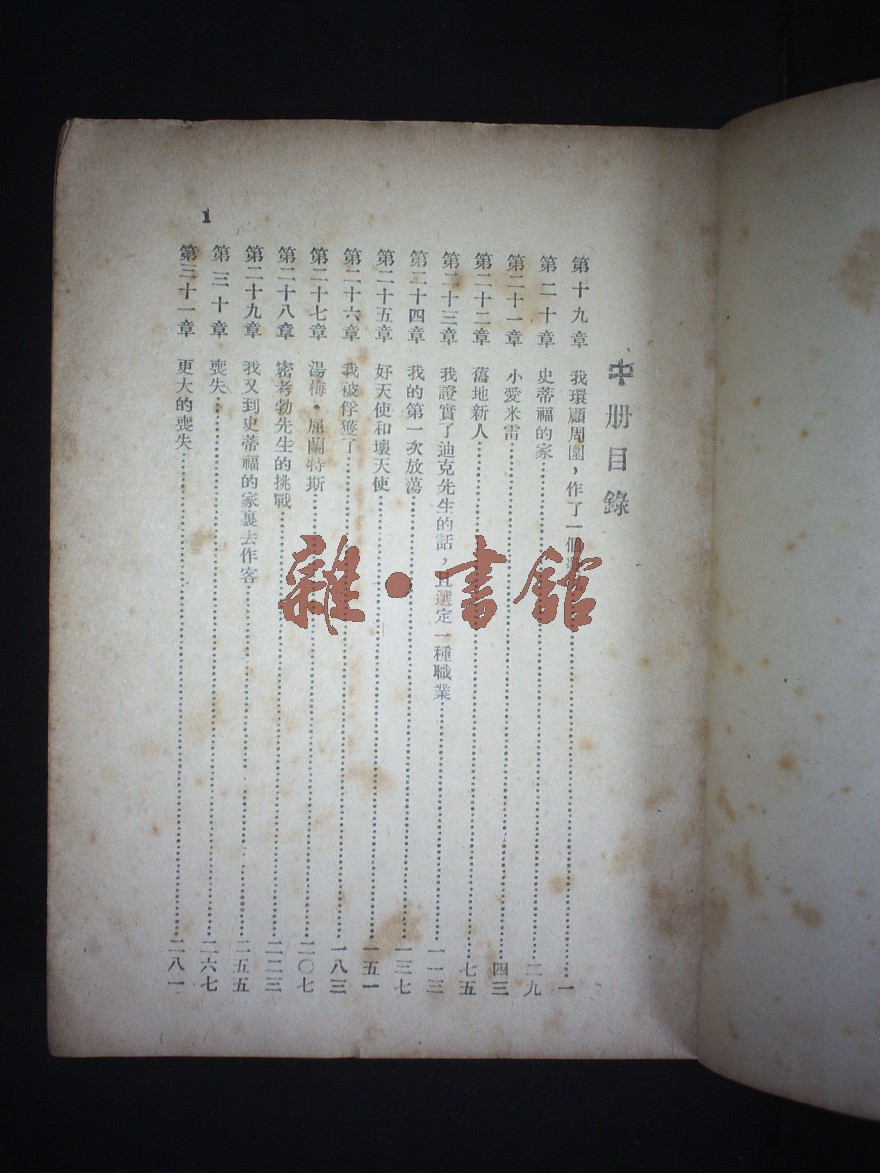 中册目錄
第十九章 我環顧周圍，作了一個…………一
第二十章 史蒂福的家…………二九
第二十一章 小愛米雷…………四三
第二十二章 舊地新人…………七五
第二十三章 我證實了迪克先生的話，且選定一種職業…………一一三
第二十四章 我的第一次放蕩…………一三七
第二十五章 好天使和壞天使…………一五一
第二十六章 我被俘獲了…………一八三
第二十七章 湯梅•屈蘭特斯…………二〇七
第二十八章 密考勃先生的挑戰…………二二三
第二十九章 我又到史蒂福的家裏去作客…………二五五
第三十章 喪失…………二六七
第三十一章 更大的喪失…………二八一
1
雜•書館